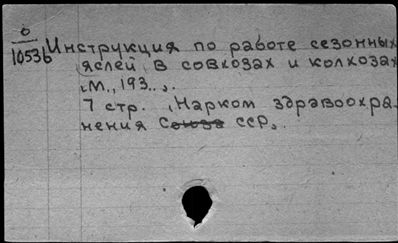 о
10536
Инструкция по работе сезонных
яслей в совхозах и колхозах
М., 193..,.
7 стр. (Нарком здравоохра-
нения Союза ССР,.